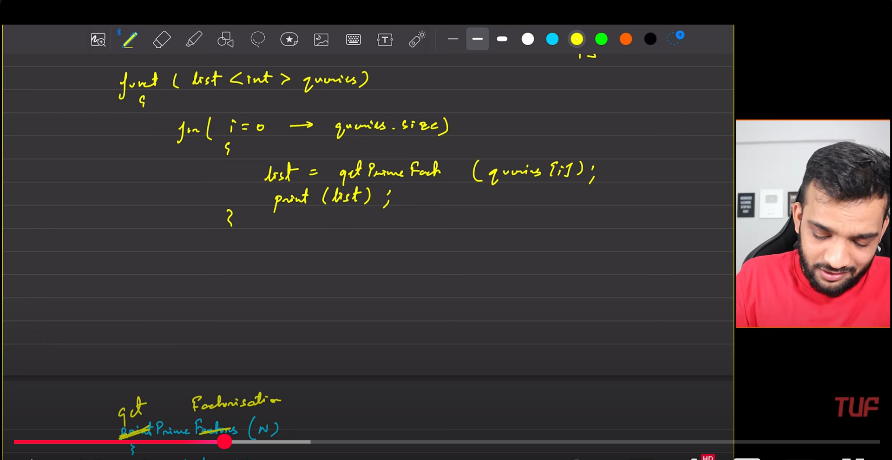 funct ( list <int> queries)
{
for( i = 0 → queries.size)
{
list = getPrimeFact (queries [i]);
print (list) ;
}
get Factorisation
print Prime Factors (N)
{
TUF
HD